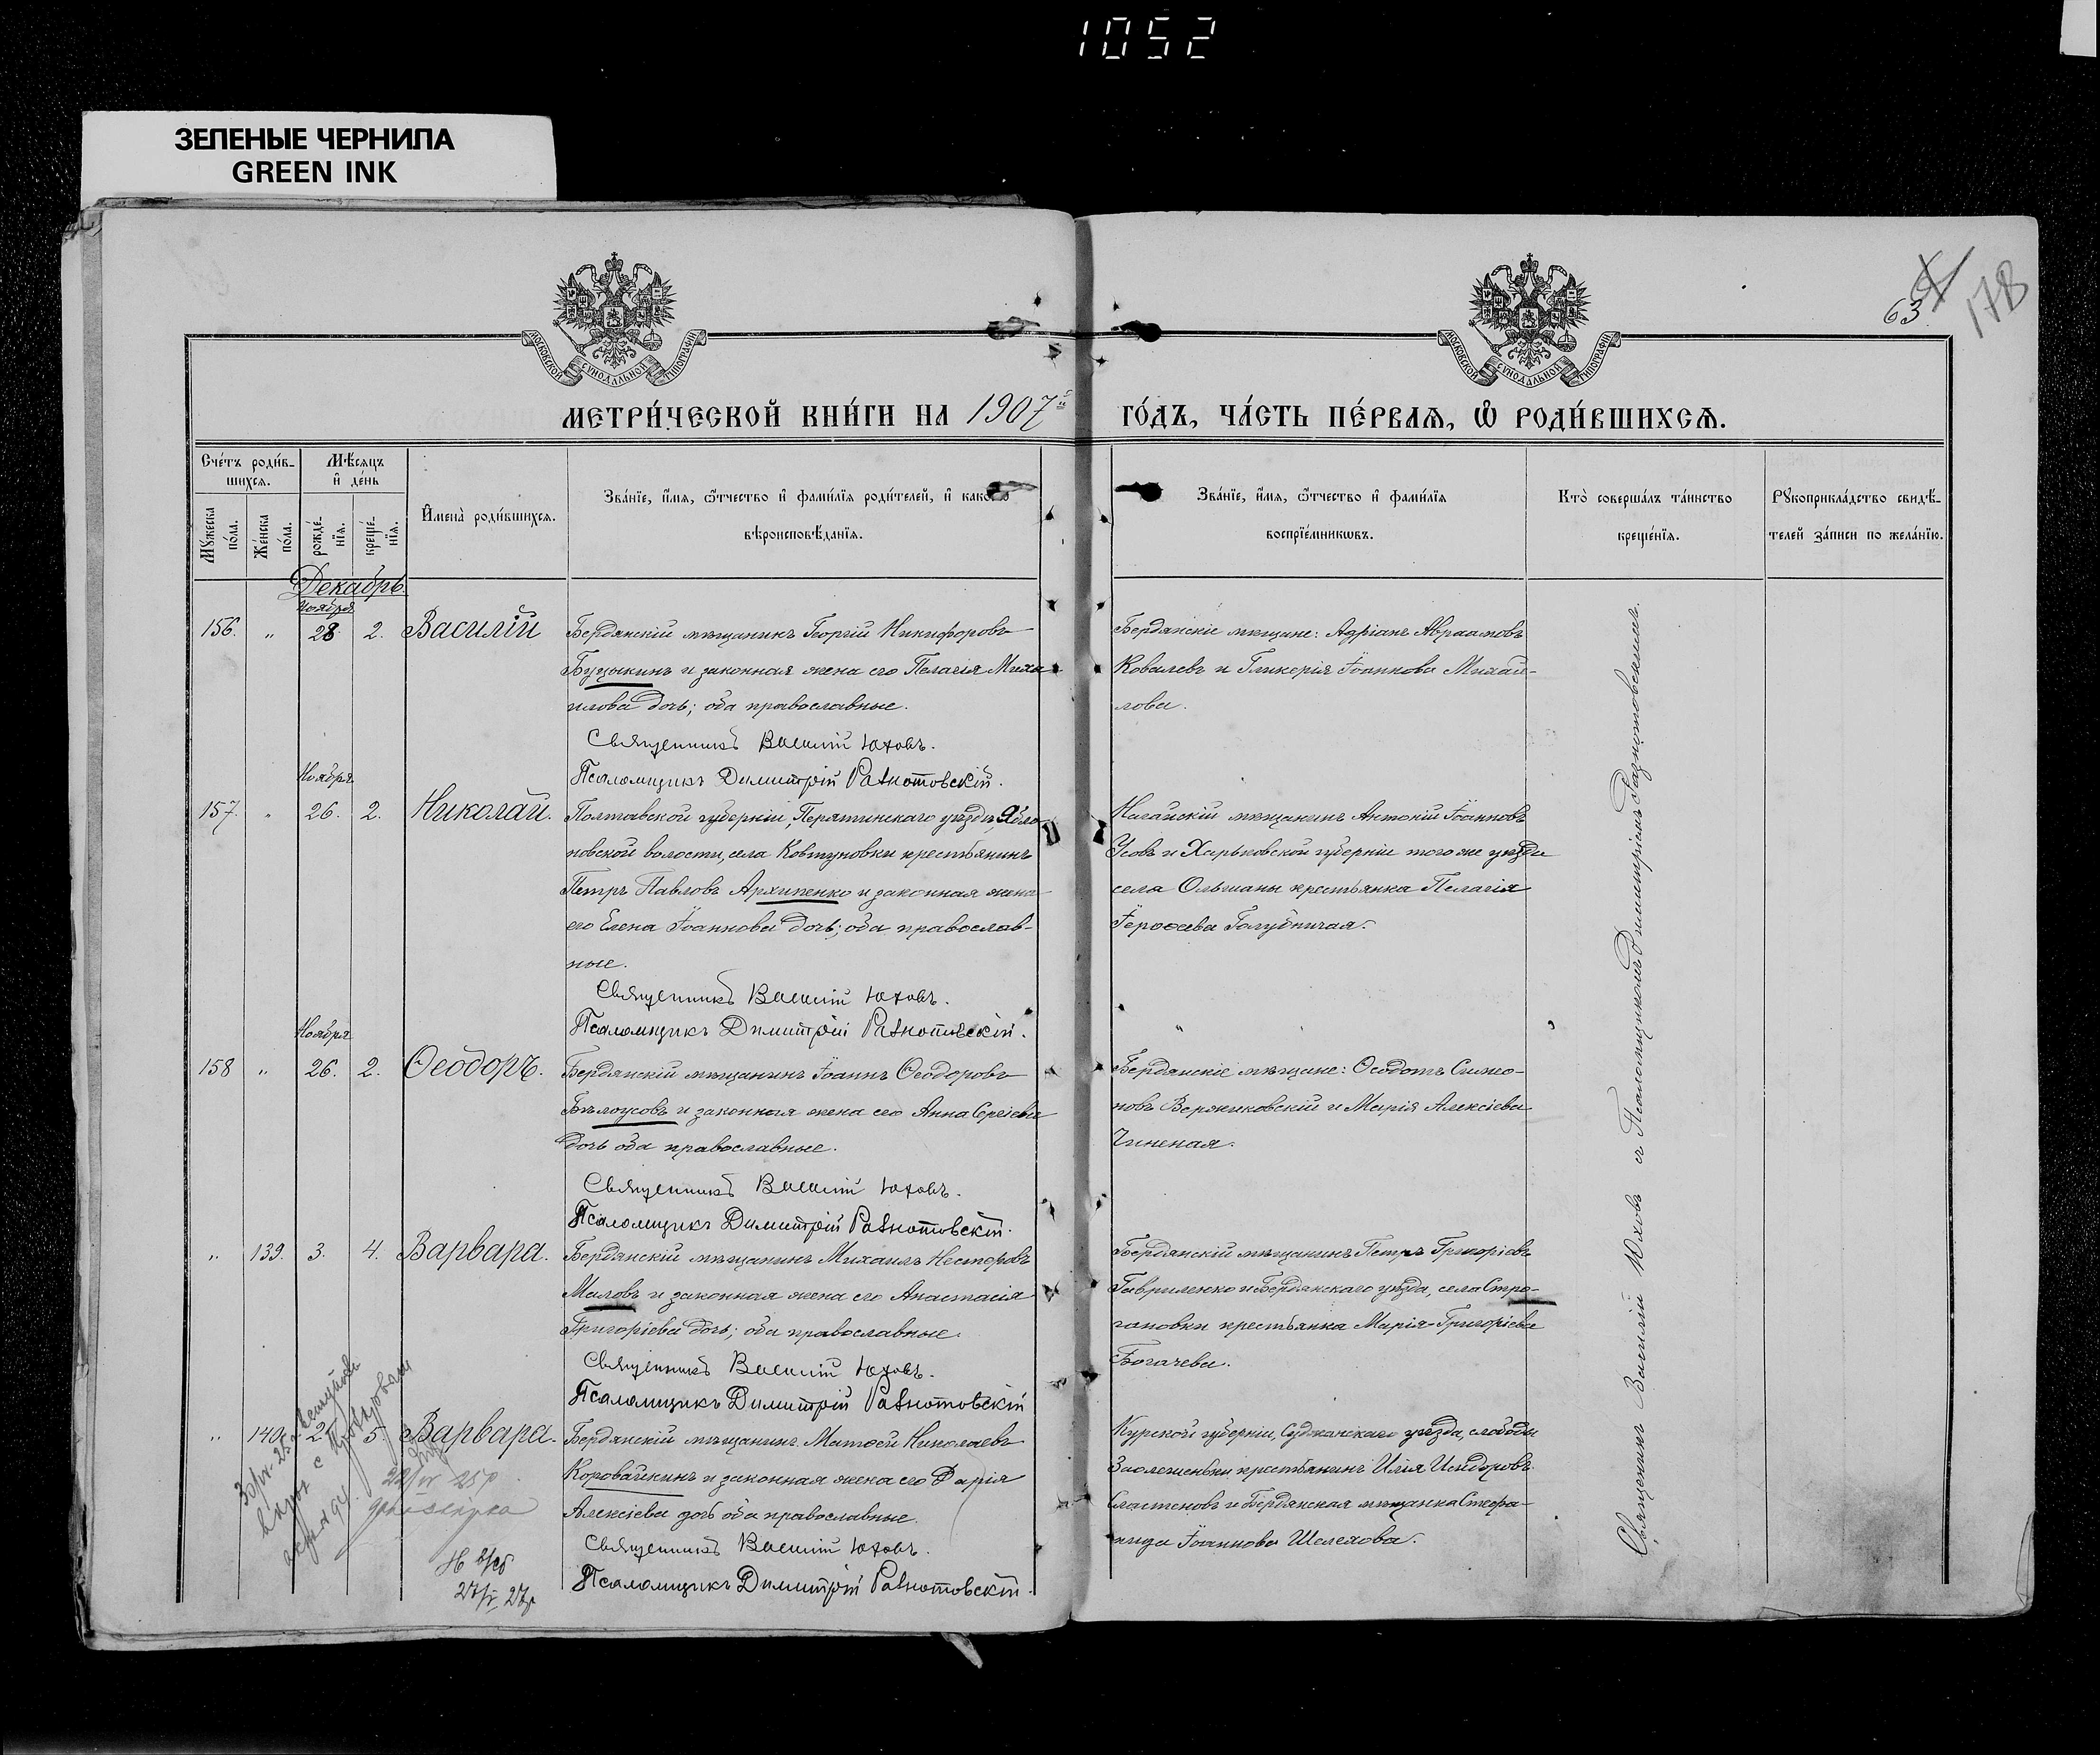 1052
ЗЕЛЕНЫЕ ЧЕРНИЛА
GREEN INK
63
178
МОСКОВСКОЙ СѴНОДАЛЬНОЙ ТИПОГРАФІИ
МОСКОВСКОЙ СѴНОДАЛЬНОЙ ТИПОГРАФІИ
МЕТРИ́ЧЕСКОЙ КНИ́ГИ НА 1907й ГО́ДЪ, ЧА́СТЬ ПЕ́РВАѦ, Ѡ҆ РОДИ́ВШИХСѦ.
Сче́тъ роди́в-
шихсѧ.
Мѣ́сѧцъ
и҆ де́нь
И҆мена̀ роди́вшихсѧ.
Зва́нїе, и҆́мѧ, ѻ҆́тчество и҆ фами́лїѧ роди́телей, и҆ како́гѡ
вѣроисповѣ́данїѧ.
Зва́нїе, и҆́мѧ, ѻ҆́тчество и҆ фами́лїѧ
воспрїе́мникѡвъ.
Кто̀ соверша́лъ та́инство
креще́нїѧ.
Рꙋкоприкла́дство свидѣ́-
телей за́писи по жела́нїю.
Мꙋ́жеска
по́ла.
Же́нска
по́ла.
рожде́-
нїѧ.
креще́-
нїѧ.
Декабрь.
Ноября
156. „ 28. 2. Василій
Бердянскій мѣщанинъ Георгій Никифоровъ
Буцыкинъ и законная жена его Пелагія Миха-
илова дочь; оба православные.
Священникъ Василій Юховъ.
Псаломщикъ Димитрій Разнотовскій.
Бердянскіе мѣщане: Адріанъ Авраамовъ
Ковалевъ и Гликерія Іоаннова Михай-
лова.
Ноября
157. „ 26. 2. Николай.
Полтавской губерніи, Пирятинскаго уѣзда, Ябло-
новской волости, села Ковтуновки крестьянинъ
Петръ Павловъ Архипенко и законная жена
его Елена Іоаннова дочь; оба православ-
ные.
Священникъ Василій Юховъ.
Псаломщикъ Димитрій Разнотовскій.
Ногайскій мѣщанинъ Антоній Іоанновъ
Усовъ и Харьковской губерніи того же уѣзда
села Ольшаны крестьянка Пелагія
Голубничая.
Ноября
158 „ 26. 2. Ѳеодоръ.
Бердянскій мѣщанинъ Іоаннъ Ѳеодоровъ
Бѣлоусовъ и законная жена его Анна Сергіева
дочь оба православные.
Священникъ Василій Юховъ.
Псаломщикъ Димитрій Разнотовскій.
Бердянскіе мѣщане: Ѳеодотъ Симео-
новъ Вержиковскій и Марія Алексіева
Чиненая.
„ 139. 3. 4. Варвара.
Бердянскій мѣщанинъ Михаилъ Несторовъ
Маловъ и законная жена его Анастасія
Григоріева дочь; оба православные.
Священникъ Василій Юховъ.
Псаломщикъ Димитрій Разнотовскій
Бердянскій мѣщанинъ Петръ Григоріевъ
Гавриленко и Бердянскаго уѣзда, села Стро-
гановки крестьянка Марія Григоріева
Богачева.
„ 140. 2. 5. Варвара.
Бердянскій мѣщанинъ Матѳей Николаевъ
Коровайкинъ и законная жена его Дарія
Алексіева дочь оба православные.
Священникъ Василій Юховъ.
Псаломщикъ Димитрій Разнотовскій.
Курской губерніи, Суджанскаго уѣзда, слободы
Заолешенки крестьянинъ Илія Исидоровъ
Сластеновъ и Бердянская мѣщанка Стефа-
нида Іоаннова Шелехова.
Священникъ Василій Юховъ съ Псаломщикомъ Димитріемъ Разнотовскимъ.